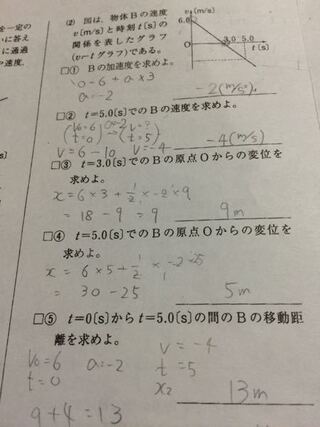 を一定の
かに答え
に通過
や速度.
(2) 図は，物体Bの速度
v〔m/s〕と時刻t〔s〕の
関係を表したグラフ
(v−tグラフ)である。
v〔m/s〕
6.0
O
3.0 5.0
t〔s〕
□① Bの加速度を求めよ。
0=6+a×3
a=-2
-2(m/s²).
□② t=5.0〔s〕でのBの速度を求めよ。
V₀=6 a=-2 V=?
t=0 t=5
V=6-10 V=-4
-4(m/s)
□③ t=3.0〔s〕でのBの原点Oからの変位を
求めよ。
x=6×3+1/2×-2×9
=18-9=9
9m
□④ t=5.0〔s〕でのBの原点Oからの変位を
求めよ。
x=6×5+1/2×-2×25
=30-25
5m
□⑤ t=0〔s〕からt=5.0〔s〕の間のBの移動距
離を求めよ。
V₀=6 a=-2 V=-4
t=0 t=5
x=
13m
9+4=13